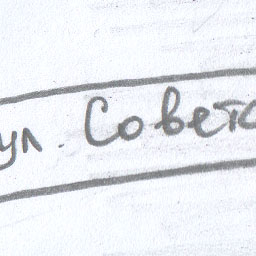 ул. Советс